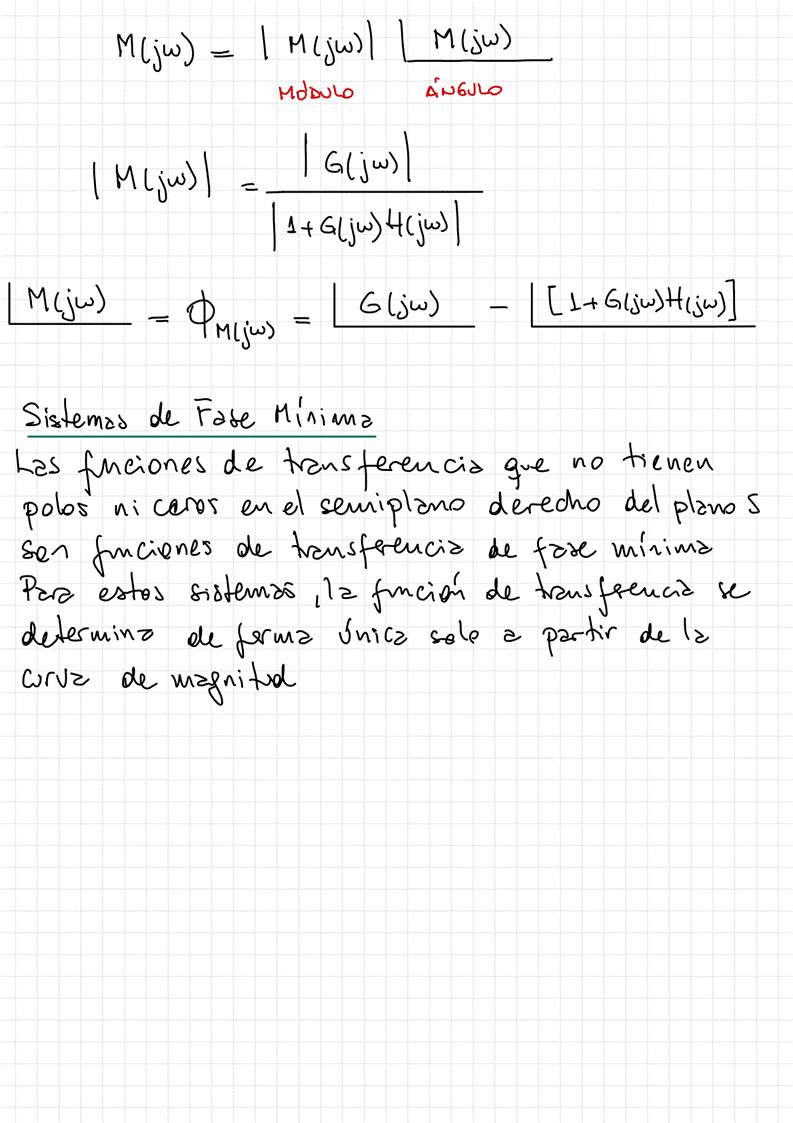 M(jω) = |M(jω)| ∠M(jω)
MÓDULO ÁNGULO
|M(jω)| = |G(jω)| / |1+G(jω)H(jω)|
∠M(jω) = ϕM(jω) = ∠G(jω) − ∠[1+G(jω)H(jω)]
Sistemas de Fase Mínima
Las funciones de transferencia que no tienen
polos ni ceros en el semiplano derecho del plano S
son funciones de transferencia de fase mínima
Para estos sistemas, la función de transferencia se
determina de forma única solo a partir de la
curva de magnitud